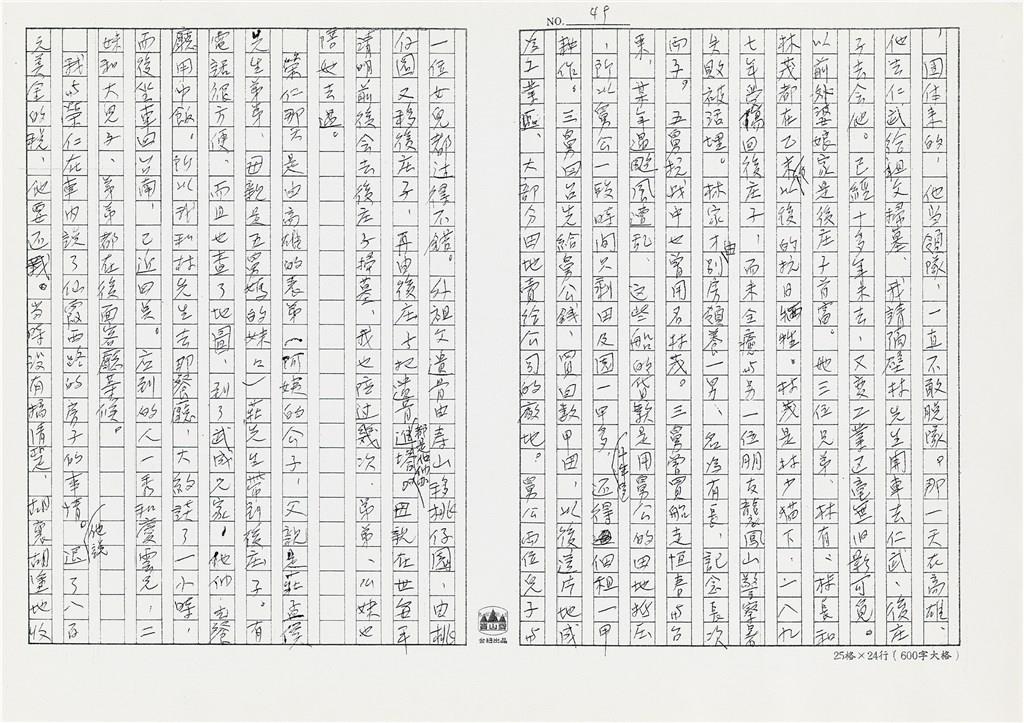 NO. 49
,團体來的,他当領隊,一直不敢脫隊。那一天在高雄、
他去仁武給祖父掃墓、我請隔壁林先生開車去仁武、後庄
子去会他。已經十多年未去,又変工業区毫無旧影可覓。
以前外婆娘家是後庄子首富。他三位兄弟、林有、林長和
林茂都在乙未以後的抗日犧牲。林茂是林少猫下、一八九
七年受傷回後庄子、而未全癒与另一位朋友襲鳳山警察署
失敗被活埋。林家才由別房領養一男、名為有長、記念長次
兩子。五舅抗战中也曾用名林茂。三舅曾買船走恒春与台
東、某年遇颱風遭乱、這些船的貨款是用舅公的田地抵压
,所以舅公一段時間只剩田及園一甲多,还得佃租一甲
耕作。三舅回台先給舅公錢、買回数甲田,以後這片地成
為工業區、大部分田地賣給公司的廠地。舅公両位兒子与
一位女兒都过得不錯。外祖父遺骨由寿山移桃仔園、由桃
仔園又移後庄子、再由後庄子把遺骨進塔。母親在世每年
清明前後会去後庄子掃墓、我也陪过幾次、弟弟、公妹也
陪她去過。
榮仁那天是由高雄的表弟(阿嬌的公子、父親是莊孟侯
先生弟弟、母親是五舅媽的妹妹)莊先生帶到後庄子。有
電話很方便、而且也查了地圖,到了武成兄家。他們在餐
廳用中飯。所以我和林先生去那餐廳,大約談了一小時,
而後坐車回台南、已近四点。应到的人一秀和慶雲兄,二
妹和大兒子、弟弟都在後面客廳等候。
我与榮仁在車内說了仙霞西路的房子的事情。他說退了八百
元美金的稅、他要还我。当時沒有搞清楚、胡裏胡塗地收
25格×24行(600字大格)